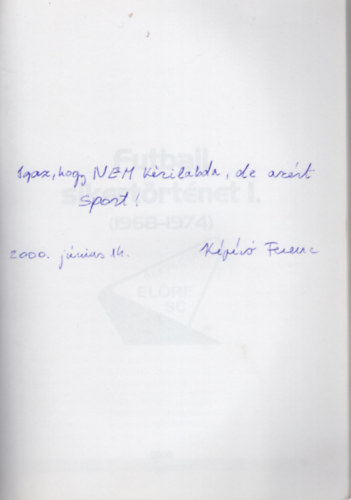 Igaz, hogy NEM kézilabda, de azért
sport!
2000. június 14.
Ferenc
Futball
sikertörténet I.
(1968-1974)
ELŐRE